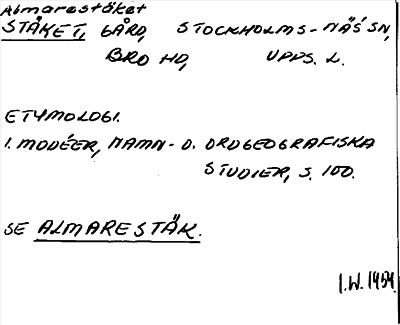 Almarestäket
STÄKET, GÅRD, STOCKHOLMS-NÄS SN,
BRO HD, UPPS. L.
ETYMOLOGI.
I. MODÉER, NAMN- O. ORDGEOGRAFISKA
STUDIER, S. 100.
SE ALMARESTÄK.
I.W. 1954.